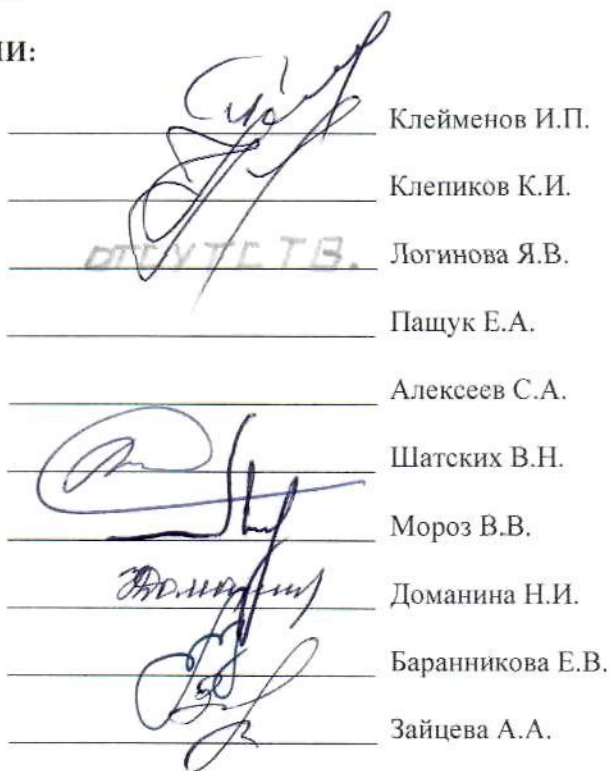 ИИ:
Клейменов И.П.
Клепиков К.И.
отсутств. Логинова Я.В.
Пащук Е.А.
Алексеев С.А.
Шатских В.Н.
Мороз В.В.
Доманина Н.И.
Баранникова Е.В.
Зайцева А.А.